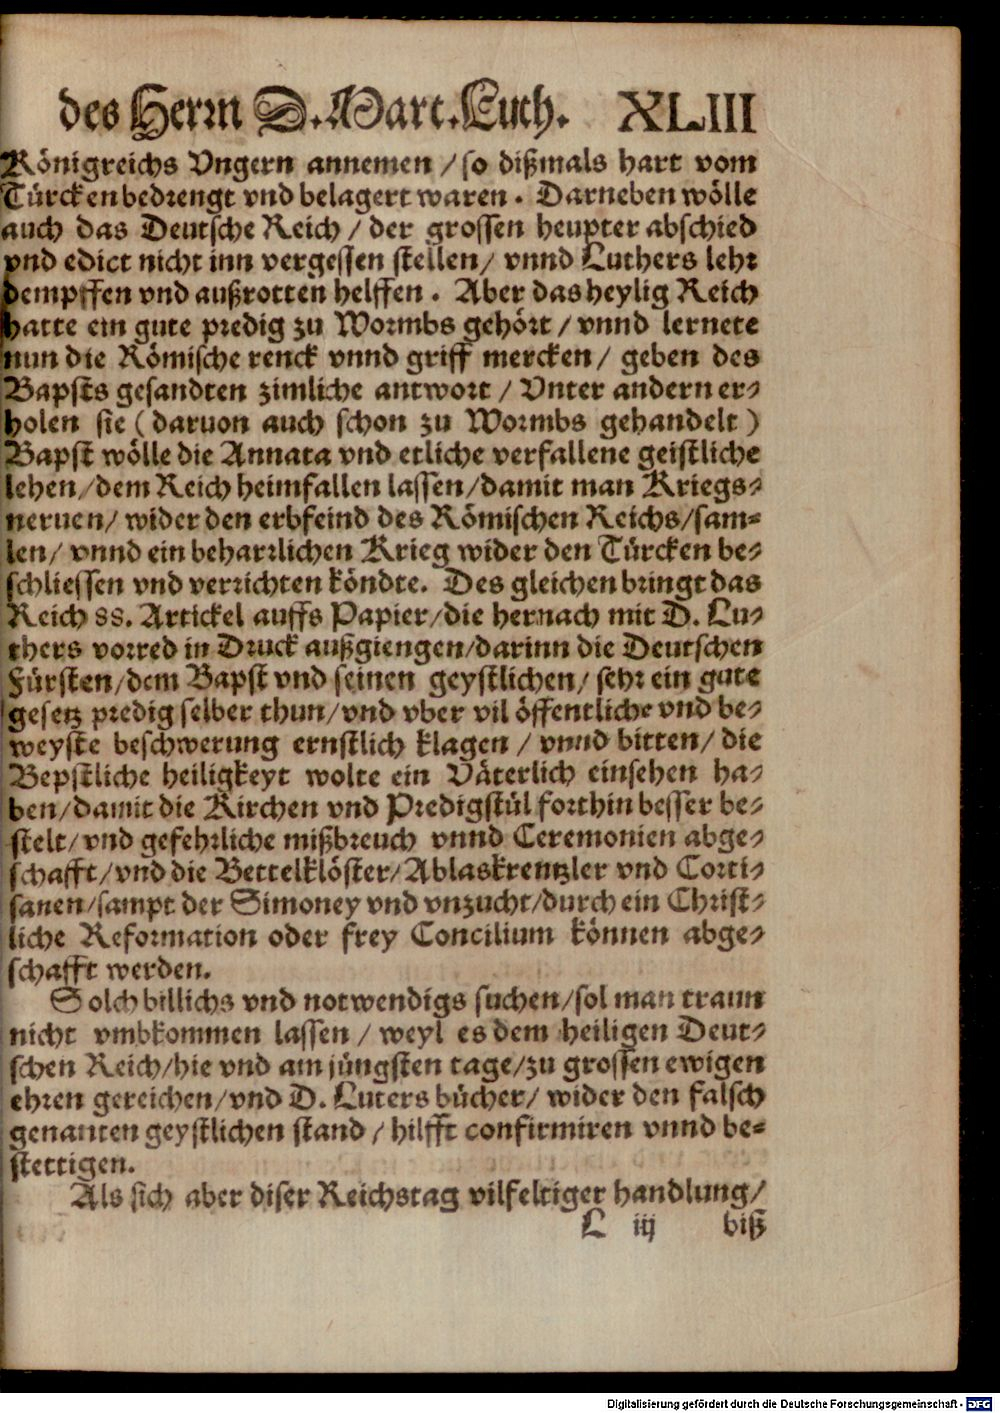 des Herrn D. Mart. Luth. XLIII
Königreichs Vngern annemen / so dißmals hart vom
Türcken bedrengt vnd belagert waren. Darneben wölle
auch das Deutsche Reich / der grossen heupter abschied
vnd edict nicht inn vergessen stellen / vnnd Luthers lehr
dempffen vnd außrotten helffen. Aber das heylig Reich
hatte ein gute predig zu Wormbs gehört / vnnd lernete
nun die Römische renck vnnd griff mercken / geben des
Bapsts gesandten zimliche antwort / Vnter andern er-
holen sie ( daruon auch schon zu Wormbs gehandelt )
Bapst wölle die Annata vnd etliche verfallene geistliche
lehen / dem Reich heimfallen lassen / damit man Kriegs-
neruen / wider den erbfeind des Römischen Reichs / sam-
len / vnnd ein beharrlichen Krieg wider den Türcken be-
schliessen vnd verrichten köndte. Des gleichen bringt das
Reich 88. Artickel auffs Papier / die hernach mit D. Lu-
thers vorred in Druck außgiengen / darinn die Deutschen
Fürsten / dem Bapst vnd seinen geystlichen / sehr ein gute
gesetz predig selber thun / vnd vber vil öffentliche vnd be-
weyste beschwerung ernstlich klagen / vnnd bitten / die
Bepstliche heiligkeyt wolte ein Väterlich einsehen ha-
ben / damit die Kirchen vnd Predigstül forthin besser be-
stelt / vnd gefehrliche mißbreuch vnnd Ceremonien abge-
schafft / vnd die Bettelklöster / Ablaskrentzler vnd Corti-
sanen / sampt der Simoney vnd vnzucht / durch ein Christ-
liche Reformation oder frey Concilium können abge-
schafft werden.
Solch billichs vnd notwendigs suchen / sol man traun
nicht vmbkommen lassen / weyl es dem heiligen Deut-
schen Reich / hie vnd am jüngsten tage / zu grossen ewigen
ehren gereichen / vnd D. Luters bücher / wider den falsch
genanten geystlichen stand / hilfft confirmiren vnnd be-
stettigen.
Als sich aber diser Reichstag vilfeltiger handlung /
L iij biß
Digitalisierung gefördert durch die Deutsche Forschungsgemeinschaft - DFG